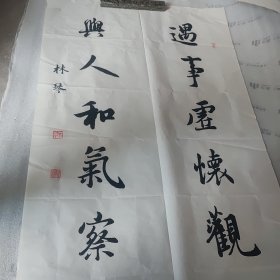 遇事虛懷觀
與人和氣察
林琴